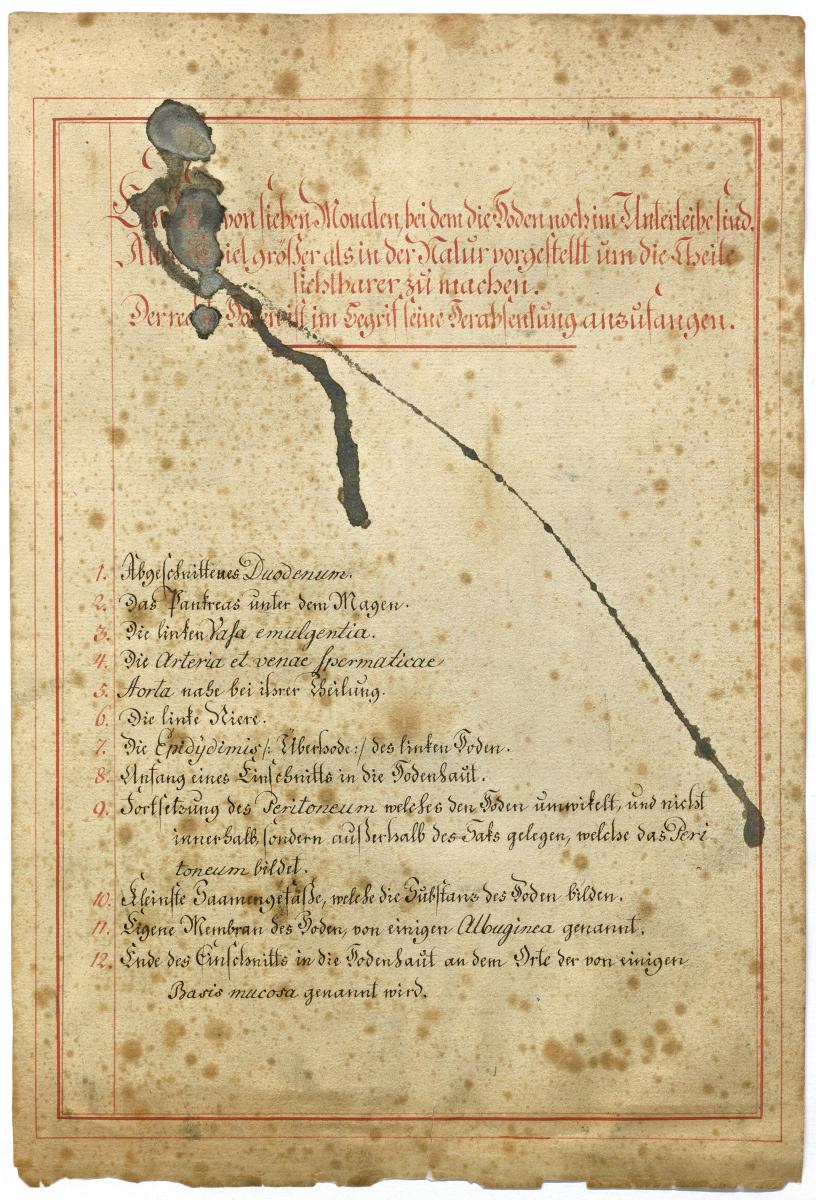 Ein von sieben Monaten, bei dem die Hoden noch im Unterleibe sind.
viel größer als in der Natur vorgestellt um die Theile
sichtbarer zu machen.
Der rechte Hoden ist im Begrif seine Herabsenkung anzufangen.
1. Abgeschnittenes Duodenum.
2. Das Pankreas unter dem Magen.
3. Die linken Vasa emulgentia.
4. Die Arteria et venae spermaticae
5. Aorta nahe bei ihrer Theilung.
6. Die linke Niere.
7. Die Epidydimis /: Überhode :/ des linken Hoden.
8. Anfang eines Einschnitts in die Hodenhaut.
9. Fortsetzung des Peritoneum welches den Hoden umwikelt, und nicht
innerhalb sondern außerhalb des Saks gelegen, welche das Peri
toneum bildet.
10. Kleinste Saamengefäße, welche die Substanz des Hoden bilden.
11. Eigene Membran des Hoden, von einigen Albuginea genannt.
12. Ende des Einschnitts in die Hodenhaut an dem Orte der von einigen
Basis mucosa genannt wird.